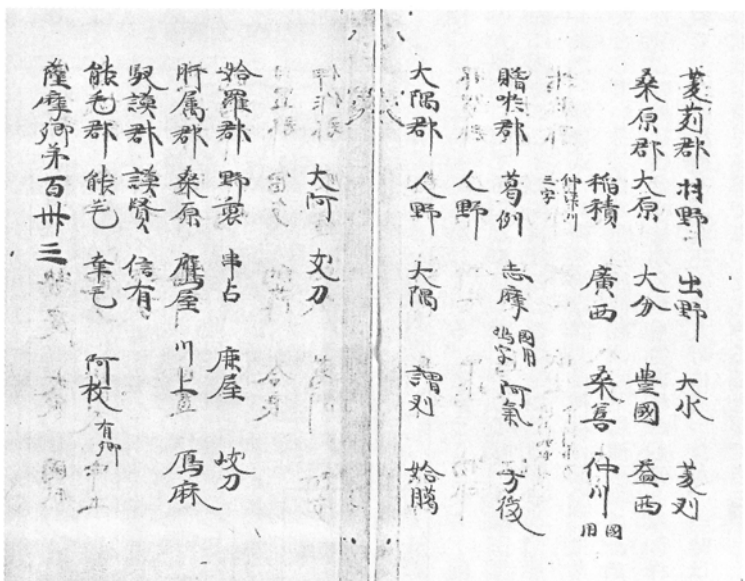 菱苅郡 村野 出野 大水 菱刈
桑原郡 大原 大分 豊國 益西
稲積 廣西 桒善 仲川 國用
仲津川三字
贈唹郡 葛例 志摩 國用嶋字 阿氣 方後
人野
大隅郡 人野 大隅 謂列 姶臈
大阿 支刀
姶羅郡 野裏 串占 鹿屋 岐刀
肝属郡 桑原 鷹屋 川上 鴈麻
馭謨郡 謨賢 信有
能毛郡 能毛 幸毛 阿枚
薩摩郷第百卅三